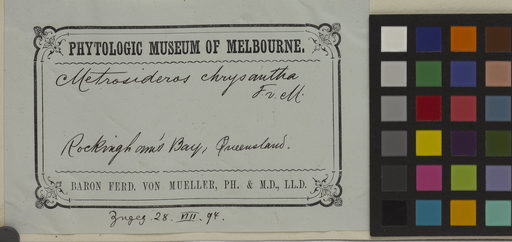 PHYTOLOGIC MUSEUM OF MELBOURNE.
Metrosideros chrysantha
F. v. M.
Rockingham's Bay, Queensland.
BARON FERD. VON MUELLER, PH. & M.D., LL.D.
28. VIII. 94.